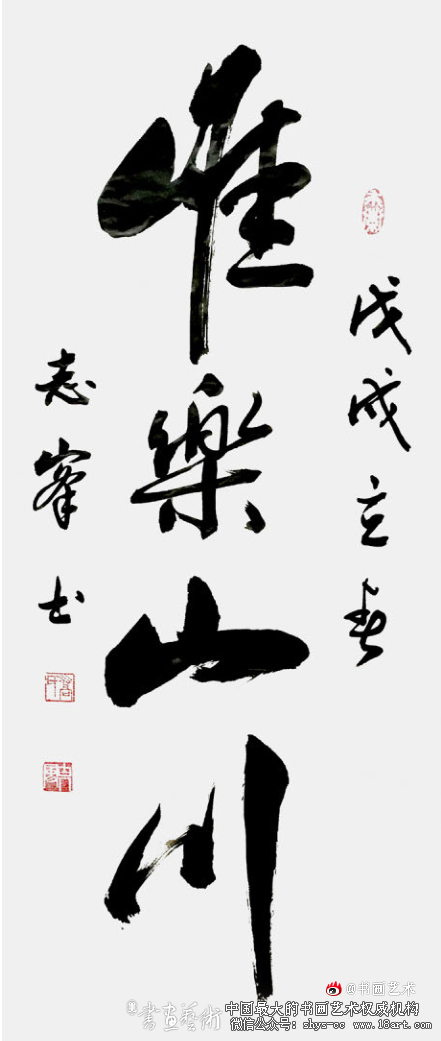 戊戌立春
惟樂山川
志峯书
@书画艺术
書画藝術
中国最大的书画艺术权威机构
微信公众号：shys-cc www.18art.com